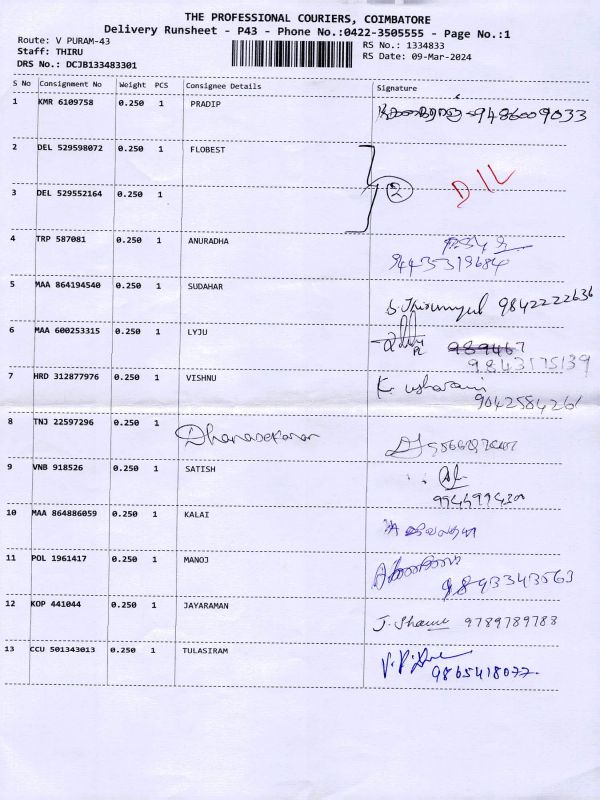 THE PROFESSIONAL COURIERS, COIMBATORE
Delivery Runsheet - P43 - Phone No.:0422-3505555 - Page No.:1
Route: V PURAM-43
RS No.: 1334833
Staff: THIRU
RS Date: 09-Mar-2024
DRS No.: DCJB133483301
S No Consignment No Weight PCS Consignee Details Signature
1 KMR 6109758 0.250 1 PRADIP 9486009033
2 DEL 529598072 0.250 1 FLOBEST
2 D/L
3 DEL 529552164 0.250 1
4 TRP 587081 0.250 1 ANURADHA
9443319684
5 MAA 864194540 0.250 1 SUDAHAR
9842222636
6 MAA 600253315 0.250 1 LYJU
9843175139
7 HRD 312877976 0.250 1 VISHNU K. Usharani
9042584261
8 TNJ 22597296 0.250 1 Dhanasekaran
9 VNB 918526 0.250 1 SATISH
10 MAA 864886059 0.250 1 KALAI
11 POL 1961417 0.250 1 MANOJ
9893343563
12 KOP 441044 0.250 1 JAYARAMAN
9789789788
13 CCU 501343013 0.250 1 TULASIRAM
9865418077.